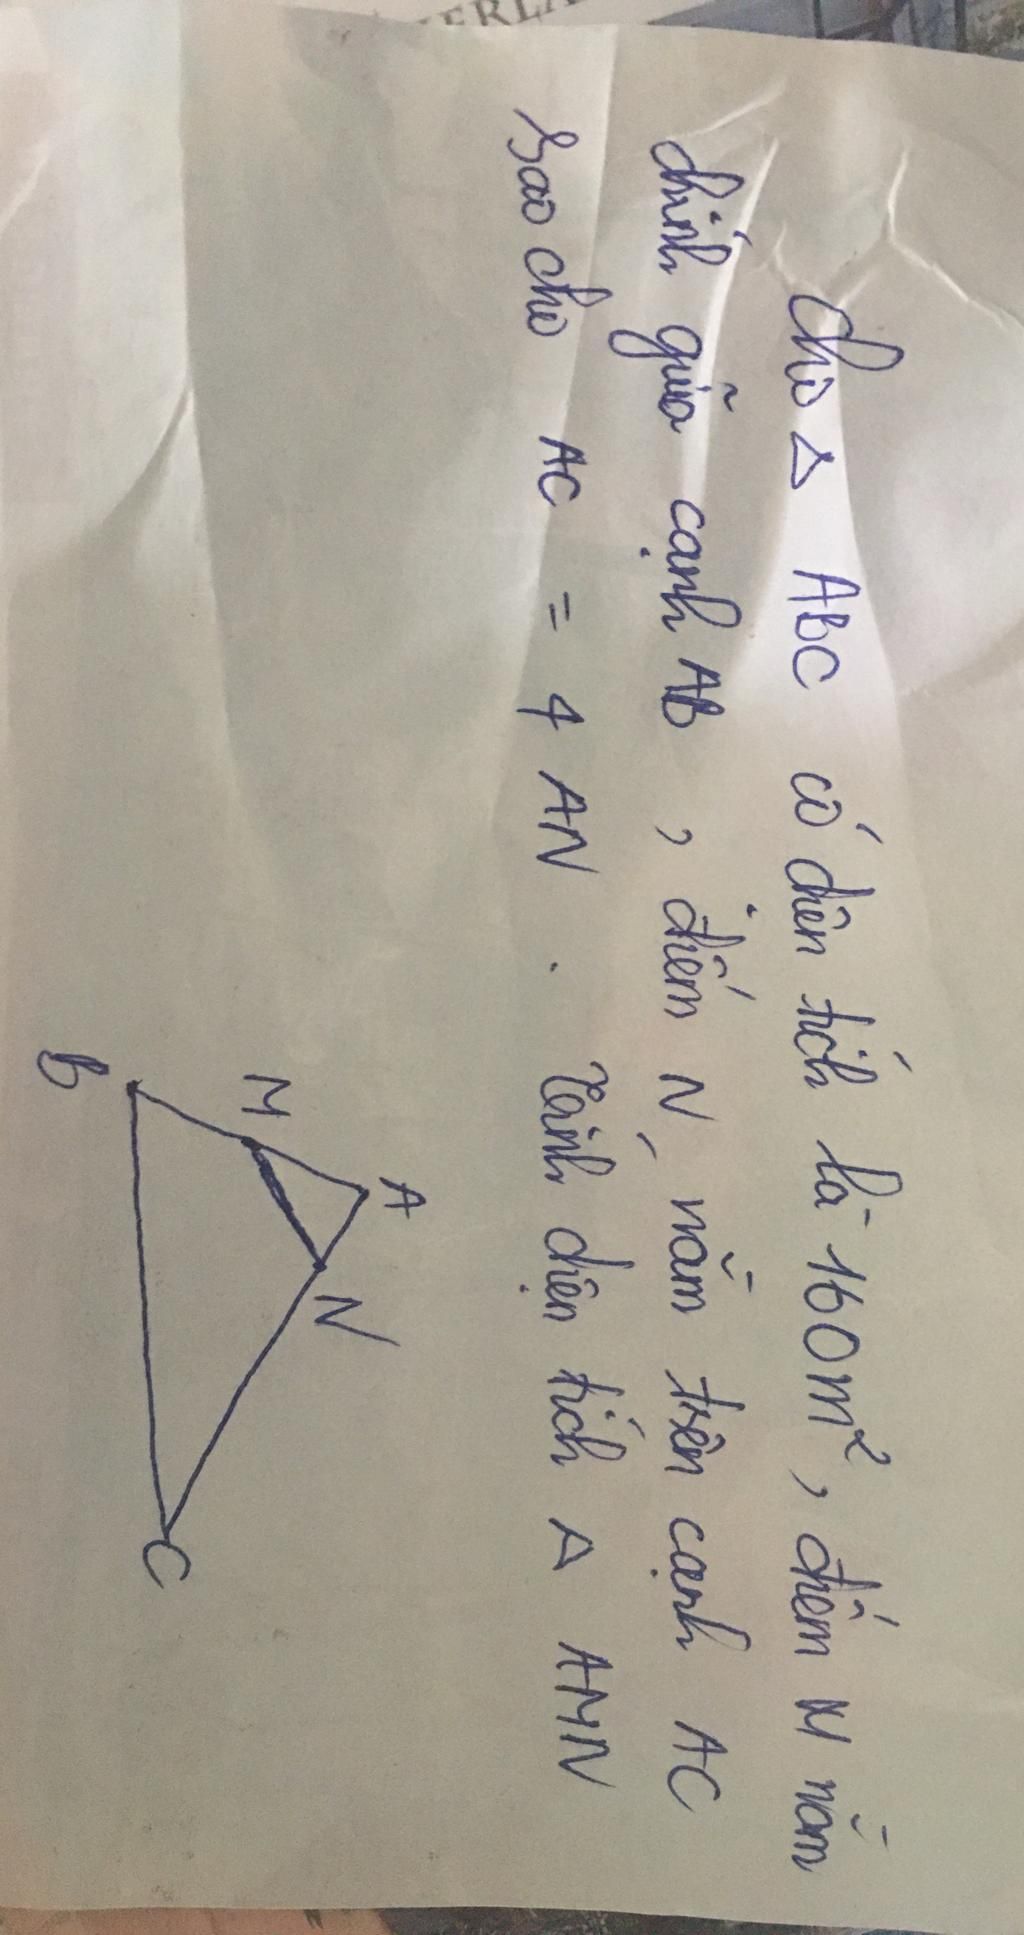 ERLA
Cho Δ ABC có diên tích là 160m², điểm M nằm
chính giữa cạnh AB, điểm N nằm trên cạnh AC
sao cho AC = 4 AN. Tính diện tích Δ AMN
A
M
N
B
C